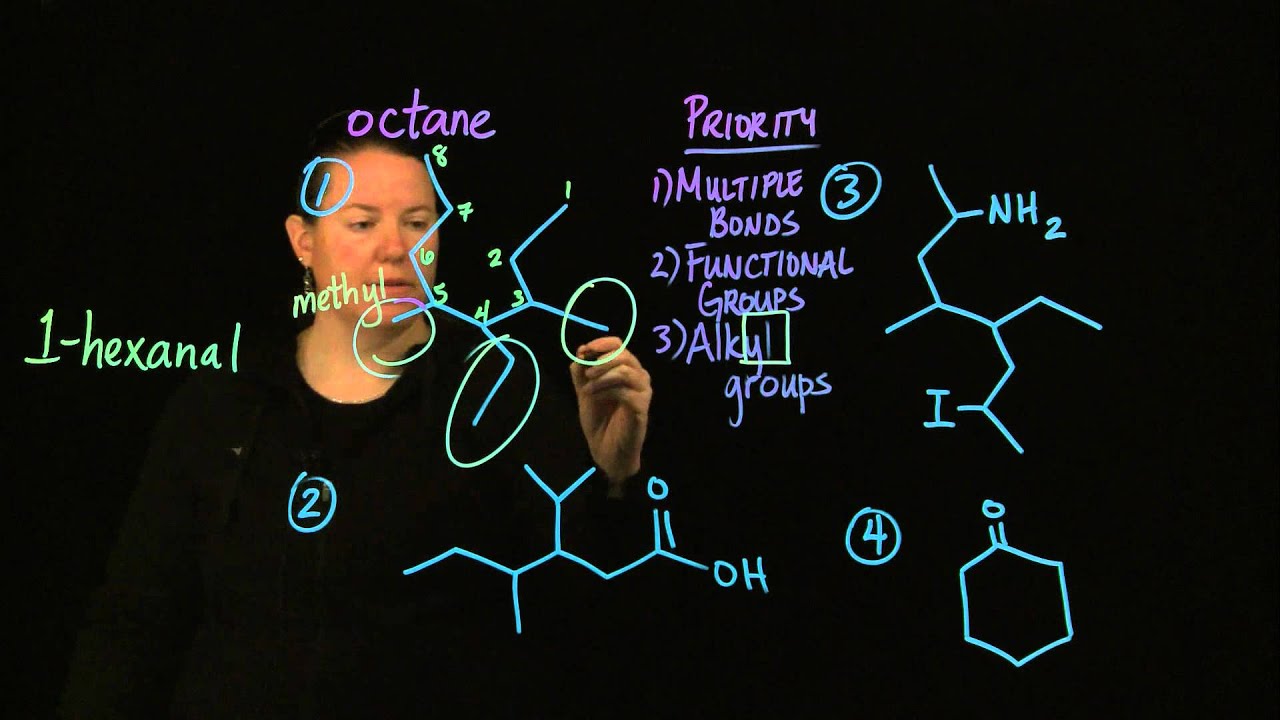 octane
1
8
7
6
5
4
3
2
1
methyl
1-hexanal
PRIORITY
1) MULTIPLE
BONDS
2) FUNCTIONAL
GROUPS
3) Alkyl
groups
3
NH2
I
2
O
OH
4
O